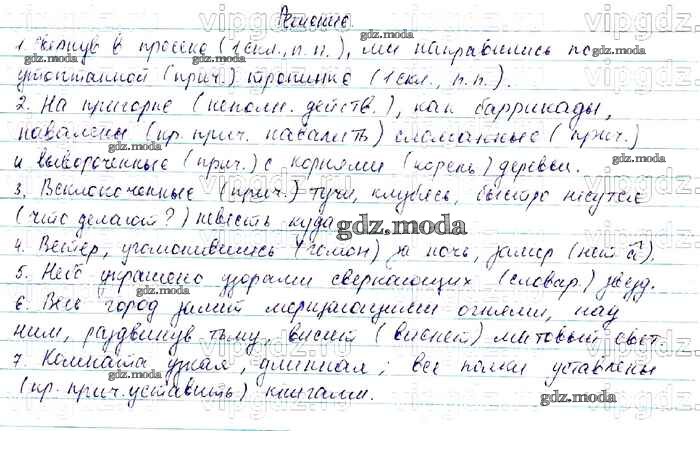 Решение
1. Свернув в просеке (1 скл., п. п.), мы направились по
утоптанной (прич.) тропинке (1 скл., п. п.).
2. На пригорке (неполн. действ.), как баррикады,
навалены (кр. прич. навалить) сломанные (прич.)
и вывороченные (прич.) с корнями (корень) деревья.
3. Всклокоченные (прич.) тучи, клубясь, быстро несутся
(что делают?) невесть куда
4. Ветер, угомонившись (гомон) за ночь, замер (нет а).
5. Небо украшено узорами сверкающих (словар.) звёзд.
6. Весь город залит мерцающими огнями, над
ним, раздвинув тьму, висит (виснет) матовый свет.
7. Комната узкая, длинная; все полки уставлены
(кр. прич. уставить) книгами.
gdz.moda
gdz.moda
gdz.moda
gdz.moda
gdz.moda
gdz.moda
gdz.moda
gdz.moda
gdz.moda
gdz.moda